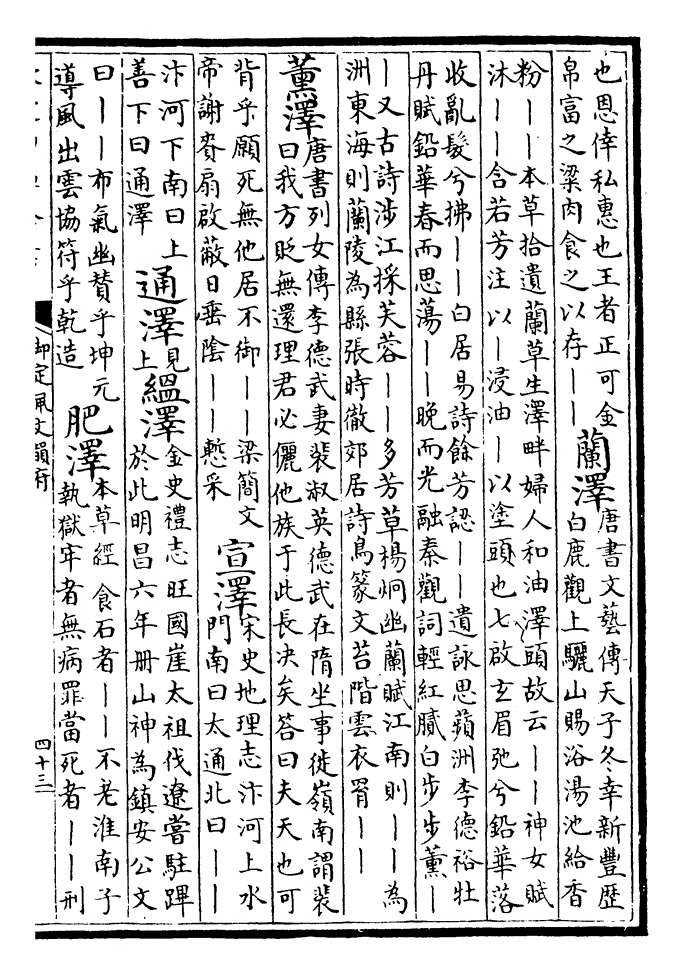 也恩倖私惠也王者正可金
帛富之粱肉食之以存——
蘭澤
唐書文藝傳天子冬幸新豐歷
白鹿觀上驪山賜浴湯池給香
粉——本草拾遺蘭草生澤畔婦人和油澤頭故云——神女賦
沐——含若芳注以—浸油—以塗頭也七啟玄眉弛兮鉛華落
收亂髮兮拂——白居易詩餘芳認——遺詠思蘋洲李德裕牡
丹賦鉛華春而思蕩——晚而光融秦觀詞輕紅膩白步步薰—
—又古詩涉江採芙蓉——多芳草楊炯幽蘭賦江南則——為
洲東海則蘭陵為縣張時徹郊居詩鳥篆文苔階雲衣罥——
薰澤
唐書列女傳李德武妻裴叔英德武在隋坐事徙嶺南謂裴
曰我方貶無還理君必儷他族于此長决矣答曰夫天也可
背乎願死無他居不御——梁簡文
帝謝賚扇啟蔽日垂陰——慙采
宣澤
宋史地理志汴河上水
門南曰太通北曰——
汴河下南曰上
善下曰通澤
通澤
見
上
縕澤
金史禮志旺國崖太祖伐遼嘗駐蹕
於此明昌六年册山神為鎮安公文
曰——布氣幽贊乎坤元
導風出雲協符乎乾造
肥澤
本草經食石者——不老淮南子
執獄牢者無病罪當死者——刑
御定佩文韻府
四十三